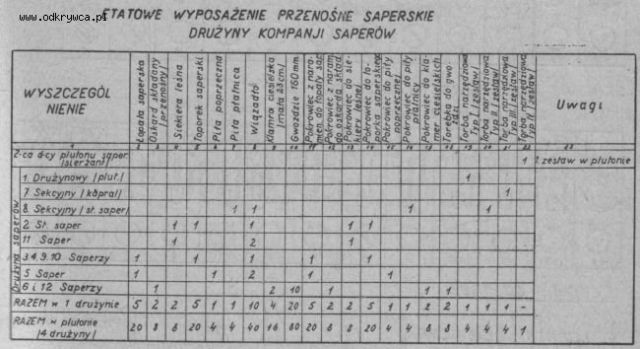 www.odkrywca.pl
ETATOWE WYPOSAŻENIE PRZENOŚNE SAPERSKIE
DRUŻYNY KOMPANJI SAPERÓW
WYSZCZEGÓL
NIENIE
Łopata saperska
Oskard składany
/przenośny/
Siekiera leśna
Toporek saperski
Piła poprzeczna
Piła płatnica
Wiązadło
Klamra ciesielska
/mała 25cm/
Gwoździe 160 mm
Pokrowiec z nara-
mien do łopaty sap
Pokrowiec z naram
Pokrowiec do sie-
kiery leśnej
Pokrowiec do to-
porka saperskiego
Pokrowiec do piły
poprzecznej
Pokrowiec do piły
płatnicy
Pokrowiec do kla-
mer ciesielskich
Torebka do gwo-
ździ
Torba narzędziowa
Typ I /zestaw/
Torba narzędziowa
Typ II /zestaw/
Torba narzędziowa
Typ III /zestaw/
Torba narzędziowa
Typ IV /zestaw/
Uwagi
Z-ca d-cy plutonu saper
/sierżan/ 1 1 zestaw w plutonie
Drużyna saperów
1 Drużynowy /plut./ 1
7 Sekcyjny /kapral/ 1
8 Sekcyjny /st. saper/ 1 1 1 1
2 St. saper 1 1 1 1
11 Saper 1 2 1
3.4.9.10 Saperzy 1 1 1 1 1
5 Saper 1 1 2 1 1
6 i 12 Saperzy 1 2 10 1 1 1
RAZEM w 1 drużynie 5 2 2 5 1 1 10 4 20 5 2 2 5 1 1 2 2 1 1 1 -
RAZEM w plutonie
/4 drużyny/ 20 8 8 20 4 4 40 16 80 20 8 8 20 4 4 8 8 4 4 4 1